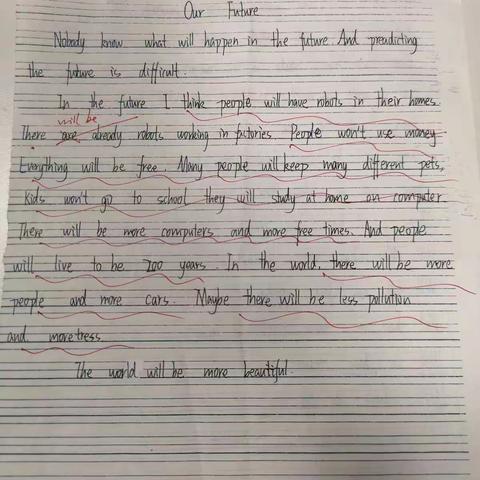 Our Future
Nobody know what will happen in the future. And preadicting
the future is difficult.
In the future I think people will have robots in their homes.
will be
There are already robots working in factories. People won't use money
Everything will be free. Many people will keep many different pets,
kids won't go to school they will study at home on computer
There will be more computers and more free times. And people
will live to be 200 years. In the world, there will be more
people and more cars. Maybe there will be less pollution
and moretress.
The world will be more beautiful.